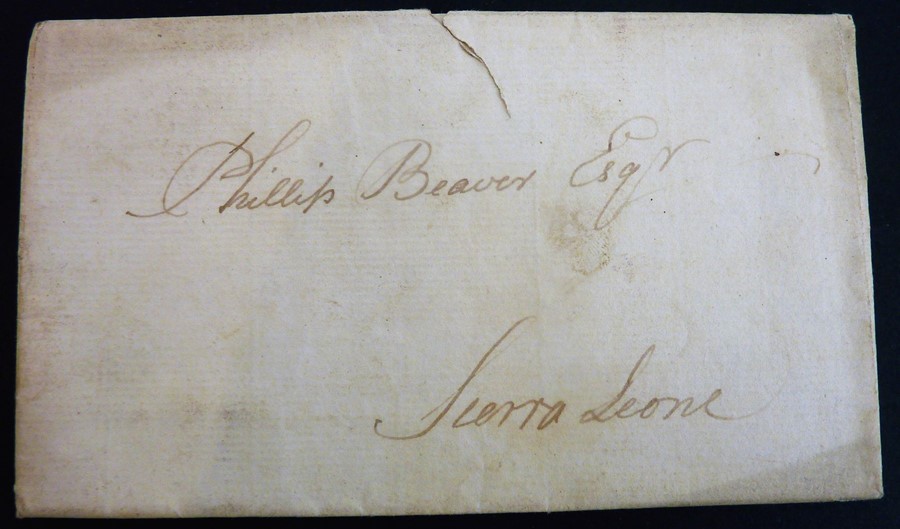 Phillip Beaver Esqr
Sierra Leone